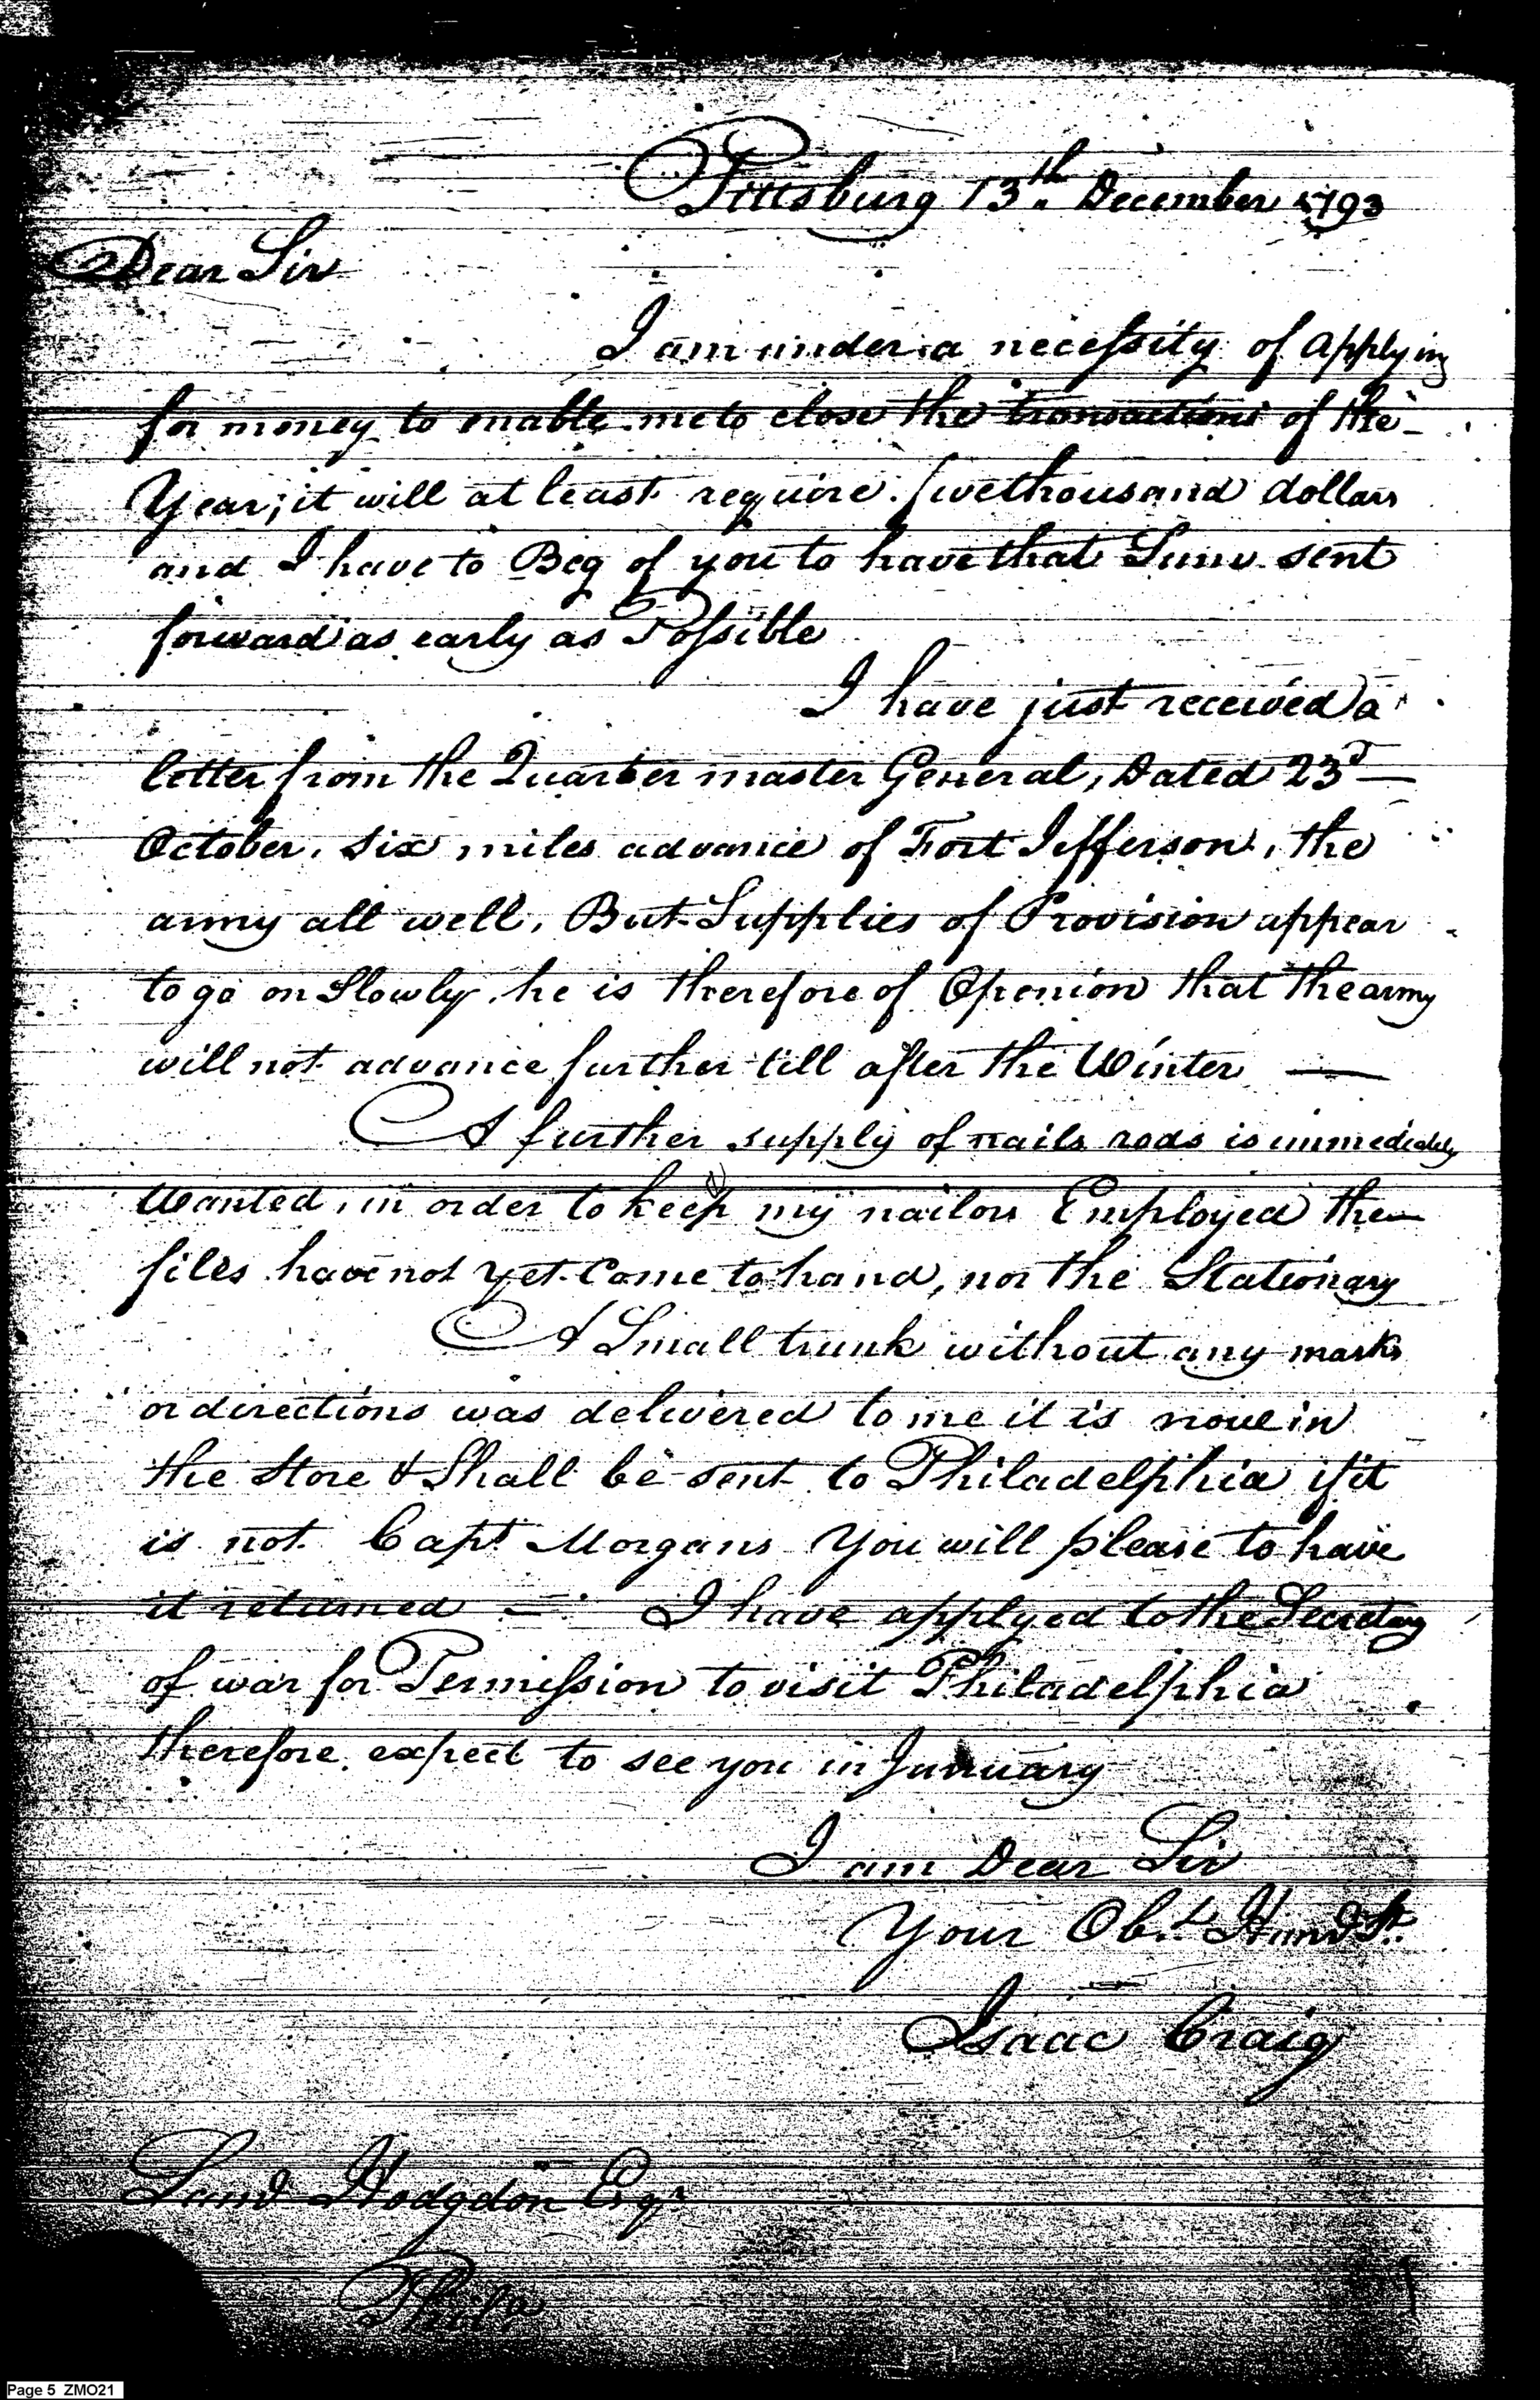 Pittsburg 13th December 1793
Dear Sir
I am under a necessity of applying
for money to enable me to close the transactions of the
Year; it will at least require five thousand dollars
and I have to Beg of you to have that Sum sent
forward as early as Possible
I have just received a
letter from the Quarter master General, Dated 23d
October, six miles advance of Fort Jefferson, the
army all well, But Supplies of Provision appear
to go on Slowly, he is therefore of Openion that the army
will not advance further till after the Winter —
A further supply of nails rods is immediately
Wanted, in order to keep my nailors Employed the
files have not yet Come to hand, nor the Stationary
A Small trunk without any marks
or directions was delivered to me it is now in
the Store & Shall be sent to Philadelphia if it
is not Capt Morgans You will please to have
it returned — I have applyed to the Secretary
of war for Permission to visit Philadelphia
therefore expect to see you in January
I am Dear Sir
Your Obt. Hum St.
Isaac Craig
Saml Hodgdon Esqr
Phila
Page 5 ZMO21